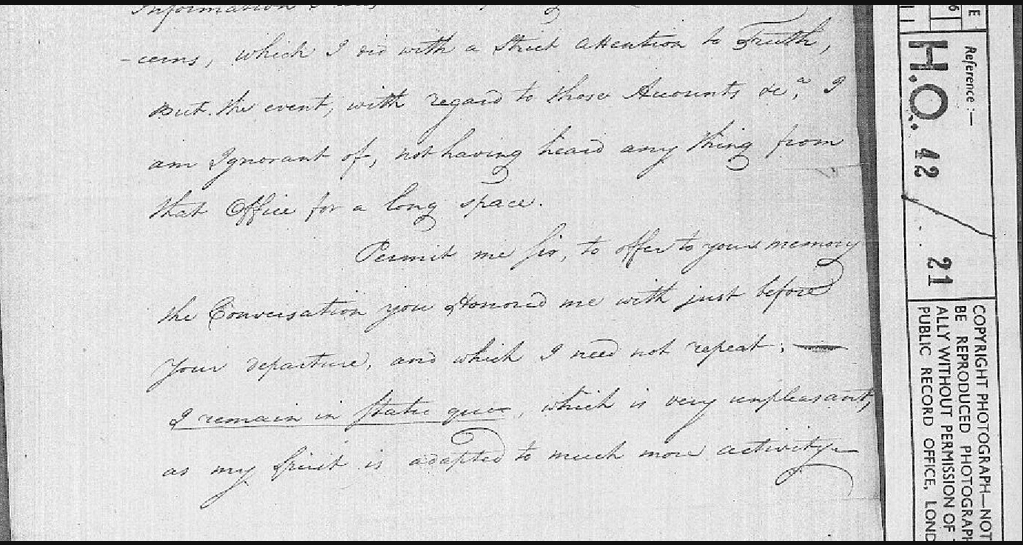 Information
-cerns, which I did with a Strict attention to Truth,
But the event, with regard to those Accounts &c.a, I
am Ignorant of, not having heard any thing from
that Office for a long space.
Permit me Sir, to offer to your memory
the Conversation you Honored me with just before
your departure, and which I need not repeat; —
I remain in Statu quo, which is very unpleasant,
as my Spirit is adapted to much more activity
Reference :—
H.O. 42
21
COPYRIGHT PHOTOGRAPH—NOT
BE REPRODUCED PHOTOGRAPH
ALLY WITHOUT PERMISSION OF
PUBLIC RECORD OFFICE, LOND